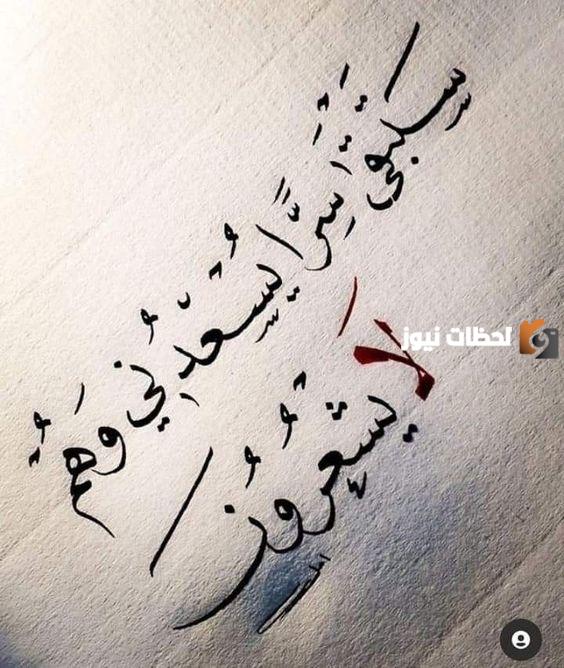 سَتَبْقَى سِرًّا يُسْعِدُنِي وَهُمْ
لَا يَشْعُرُونَ
لحظات نيوز